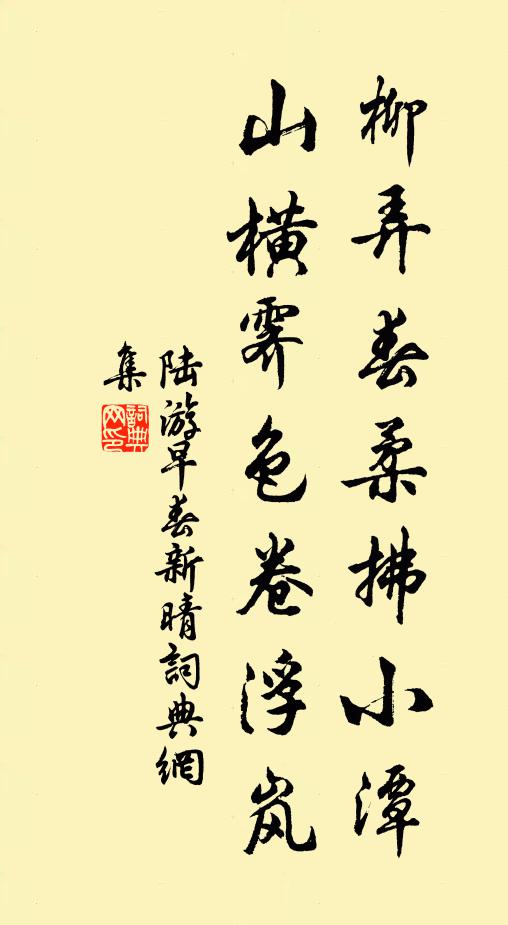 柳弄春柔拂小潭
山横霁色卷浮岚
陆游早春新晴詞典網
集
詞典
网印